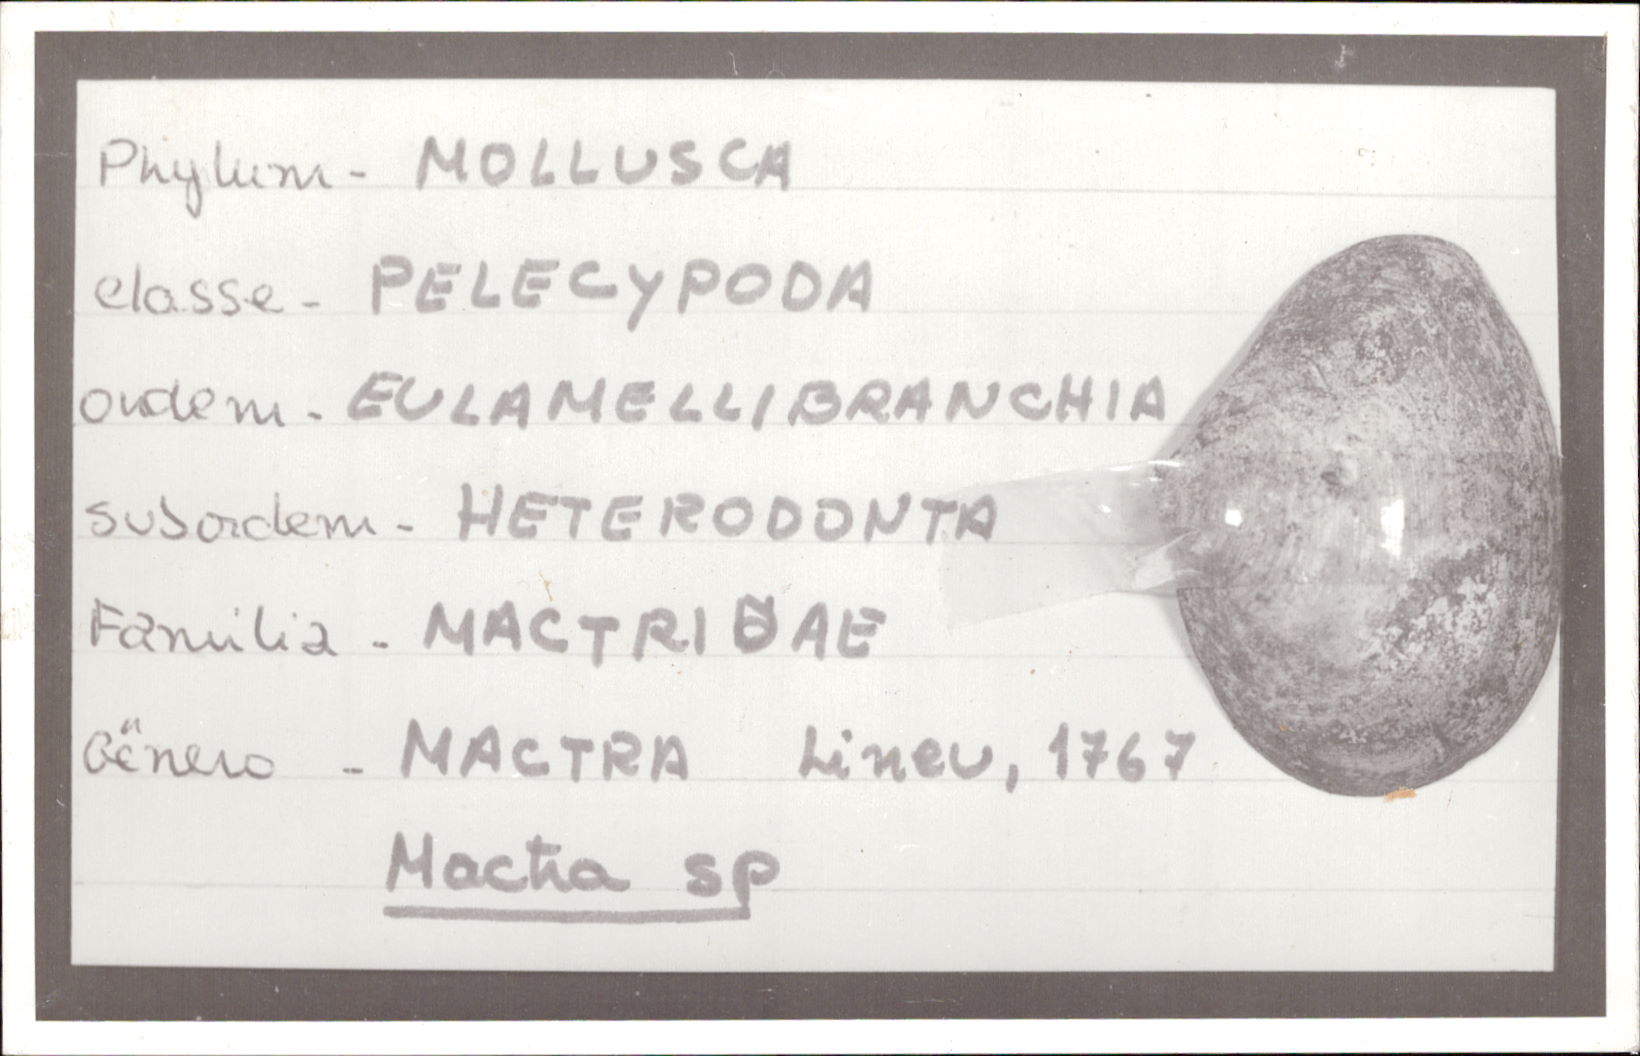 Phylum - MOLLUSCA
classe - PELECYPODA
ordem - EULAMELLIBRANCHIA
subordem - HETERODONTA
Família - MACTRIDAE
Gênero - MACTRA Lineu, 1767
Mactra sp